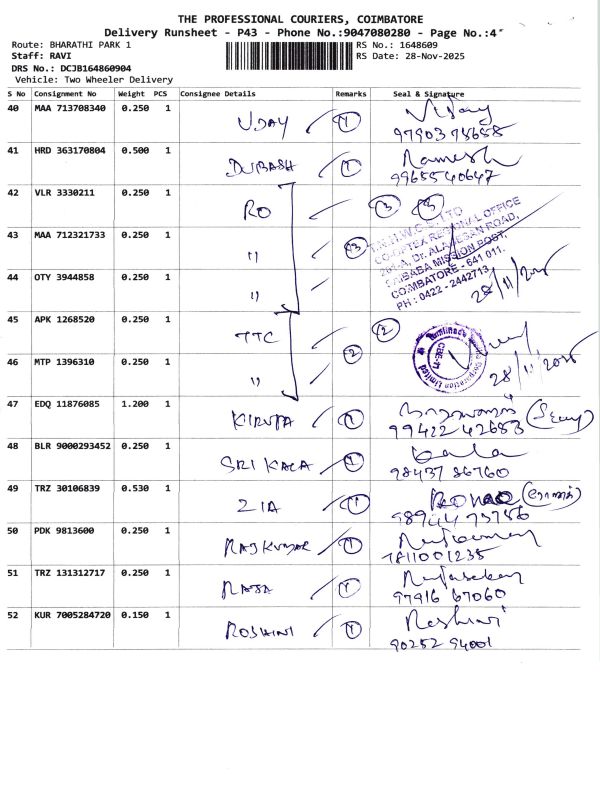 THE PROFESSIONAL COURIERS, COIMBATORE
Delivery Runsheet - P43 - Phone No.:9047080280 - Page No.:4
Route: BHARATHI PARK 1
RS No.: 1648609
Staff: RAVI
RS Date: 28-Nov-2025
DRS No.: DCJB164860904
Vehicle: Two Wheeler Delivery
S No Consignment No Weight PCS Consignee Details Remarks Seal & Signature
40 MAA 713708340 0.250 1 UDAY 1 Vijay
9790375658
41 HRD 363170804 0.500 1 DURBASH 1 Ramesh
9965540647
42 VLR 3330211 0.250 1 RO 3 3
43 MAA 712321733 0.250 1 " 3
CO-OPTEX REGIONAL OFFICE
SAIBABA MISSION POST,
COIMBATORE - 641 011.
PH : 0422 - 2442713
44 OTY 3944858 0.250 1 " 28/11/2025
45 APK 1268520 0.250 1 TTC 2
46 MTP 1396310 0.250 1 " 2 28/11/2025
47 EDQ 11876085 1.200 1 KIRUTA 1
99422 42683
48 BLR 9000293452 0.250 1 SRI KALA 1 kala
98437 86760
49 TRZ 30106839 0.530 1 ZIA 1
50 PDK 9813600 0.250 1 RAJKUMAR 1
7811001235
51 TRZ 131312717 0.250 1 RAJA 1 Rajasekar
97916 67060
52 KUR 7005284720 0.150 1 ROSHINI 1 Roshini
90252 94001